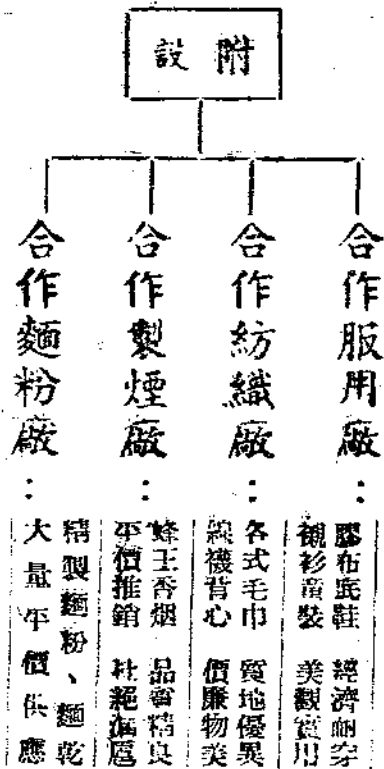 附設
合作服用廠：
膠布底鞋 經濟耐穿
襯衫童裝 美觀實用
合作紡織廠：
各式毛巾 質地優異
線襪背心 價廉物美
合作製煙廠：
蜂王香烟 品質精良
平價推銷 杜絕漏巵
合作麵粉廠：
精製麵粉、麵乾
大量平價供應